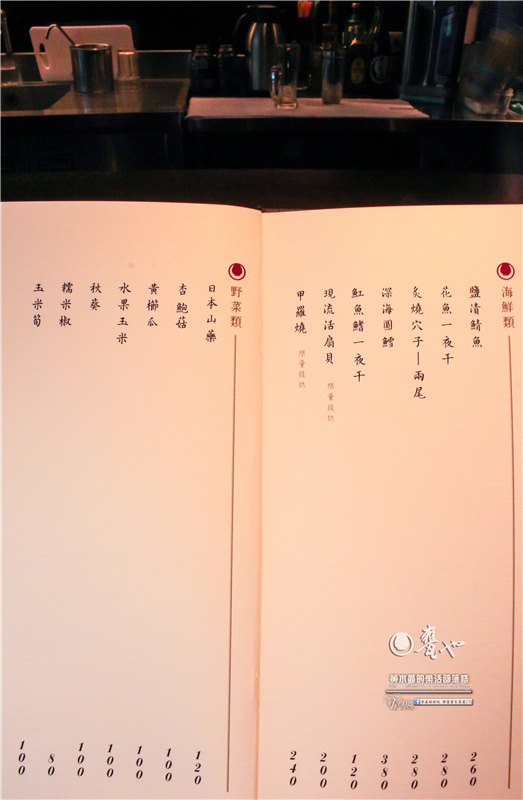 海鮮類
鹽漬鯖魚 260
花魚一夜干 280
炙燒穴子—兩尾 280
深海圓鱈 380
魟魚鰭一夜干 120
現流活扇貝 限量提供 200
甲羅燒 限量提供 240
野菜類
日本山藥 120
杏鮑菇 100
黃櫛瓜 100
水果玉米 100
秋葵 100
糯米椒 80
玉米筍 100